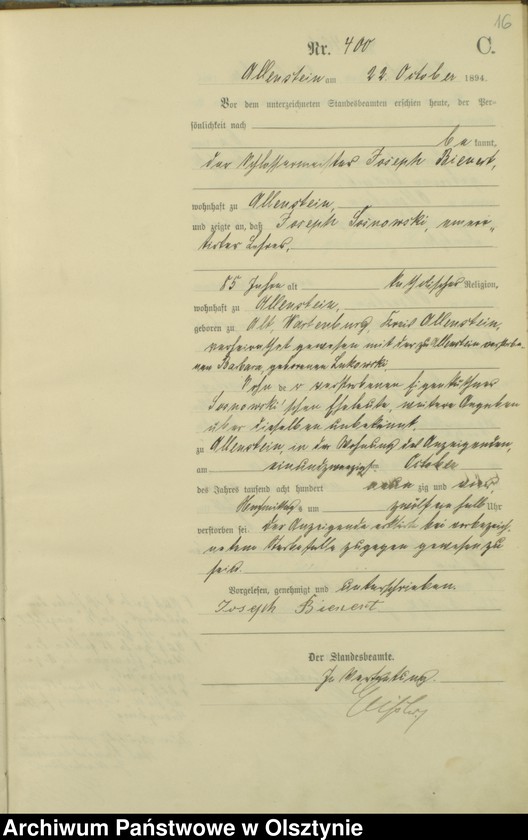 16
Nr. 400 C.
Allenstein am 22 October 1894.
Vor dem unterzeichneten Standesbeamten erschien heute, der Per-
sönlichkeit nach
be kannt,
der Schlossermeister Joseph Bienert,
wohnhaft zu Allenstein,
und zeigte an, daß Joseph Sosnowski, emeri-
tirter Lehrer,
85 Jahre alt katholischer Religion,
wohnhaft zu Allenstein,
geboren zu Alt Wartenburg, Kreis Allenstein,
verheirathet gewesen mit der zu Allenstein verstorbe-
nen Barbara, geborenen Lukowski
Sohn der verstorbenen Eigenkäthner
Sosnowski'schen Eheleute, weitere Angaben
über dieselben unbekannt,
zu Allenstein, in der Wohnung des Anzeigenden,
am einundzwanzigsten October
des Jahres tausend acht hundert neun zig und vier,
Nachmittags um zwölf ein halb Uhr
verstorben sei. Der Anzeigende erklärte bei vorbezeich-
netem Sterbefalle zugegen gewesen zu
sein.
Vorgelesen, genehmigt und unterschrieben.
Joseph Bienert
Der Standesbeamte.
In Vertretung.
Archiwum Państwowe w Olsztynie